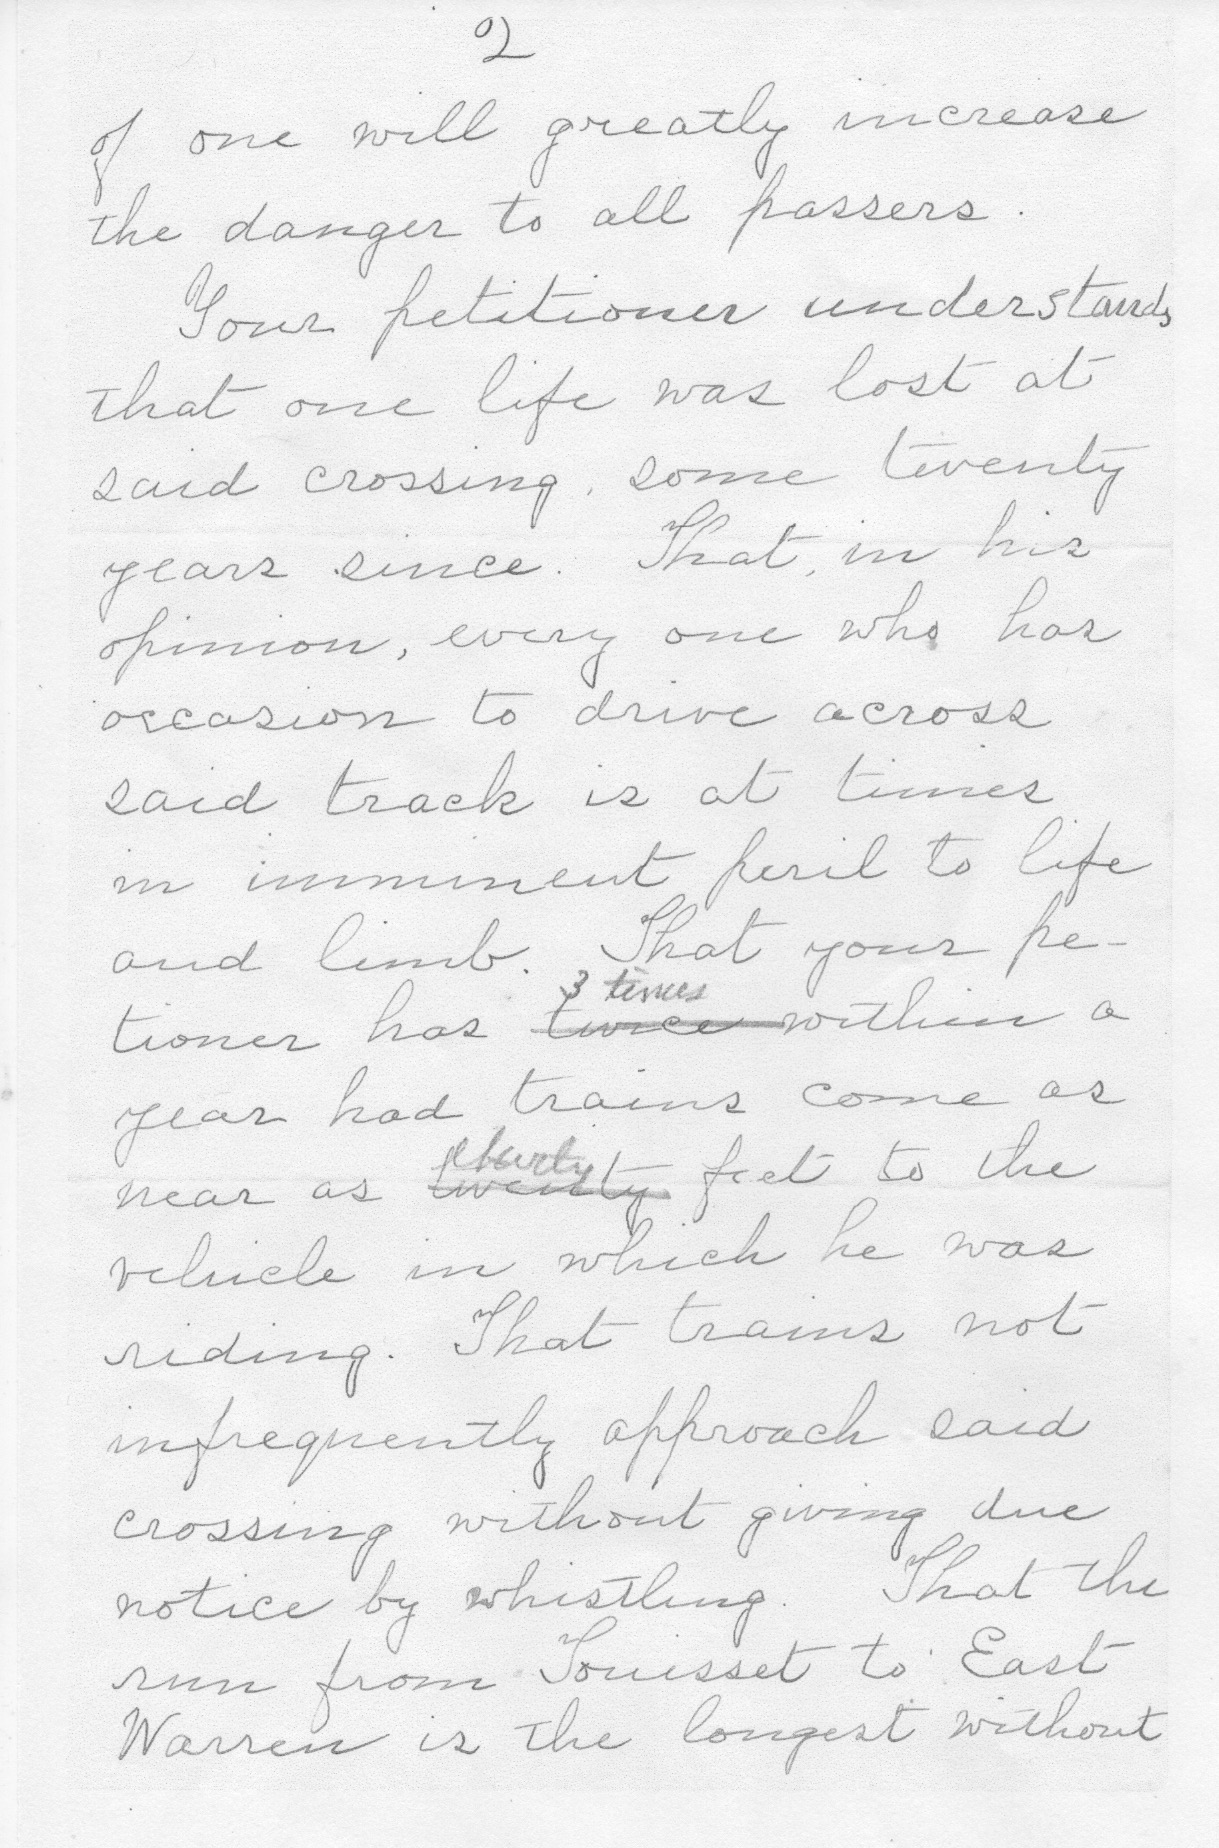 2
of one will greatly increase
the danger to all passers.
Your petitioner understands
that one life was lost at
said crossing, some twenty
years since. That, in his
opinion, every one who has
occasion to drive across
said track is at times
in imminent peril to life
and limb. That your pe-
3 times
tioner has twice within a
year had trains come as
near as twenty feet to the
vehicle in which he was
riding. That trains not
infrequently approach said
crossing without giving due
notice by whistling. That the
run from Touisset to East
Warren is the longest without